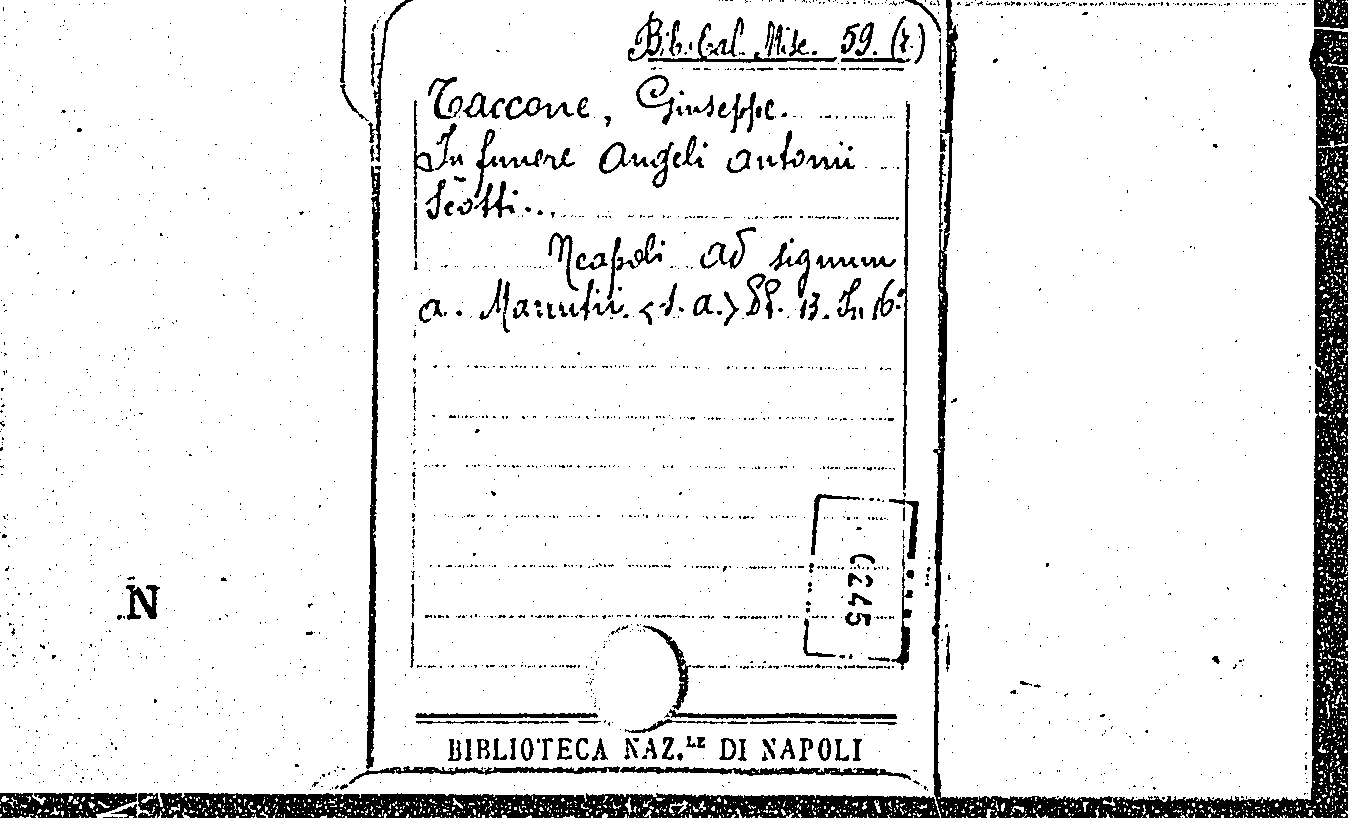 Bib. Cal. Misc. 59. (2.)
Taccone, Giuseppe.
In funere Angeli Antonii
Scotti...
Neapoli ad signum
a. Marrutii. <s. a.> Pp. 13. In 16.°
0245
N
BIBLIOTECA NAZ.LE DI NAPOLI